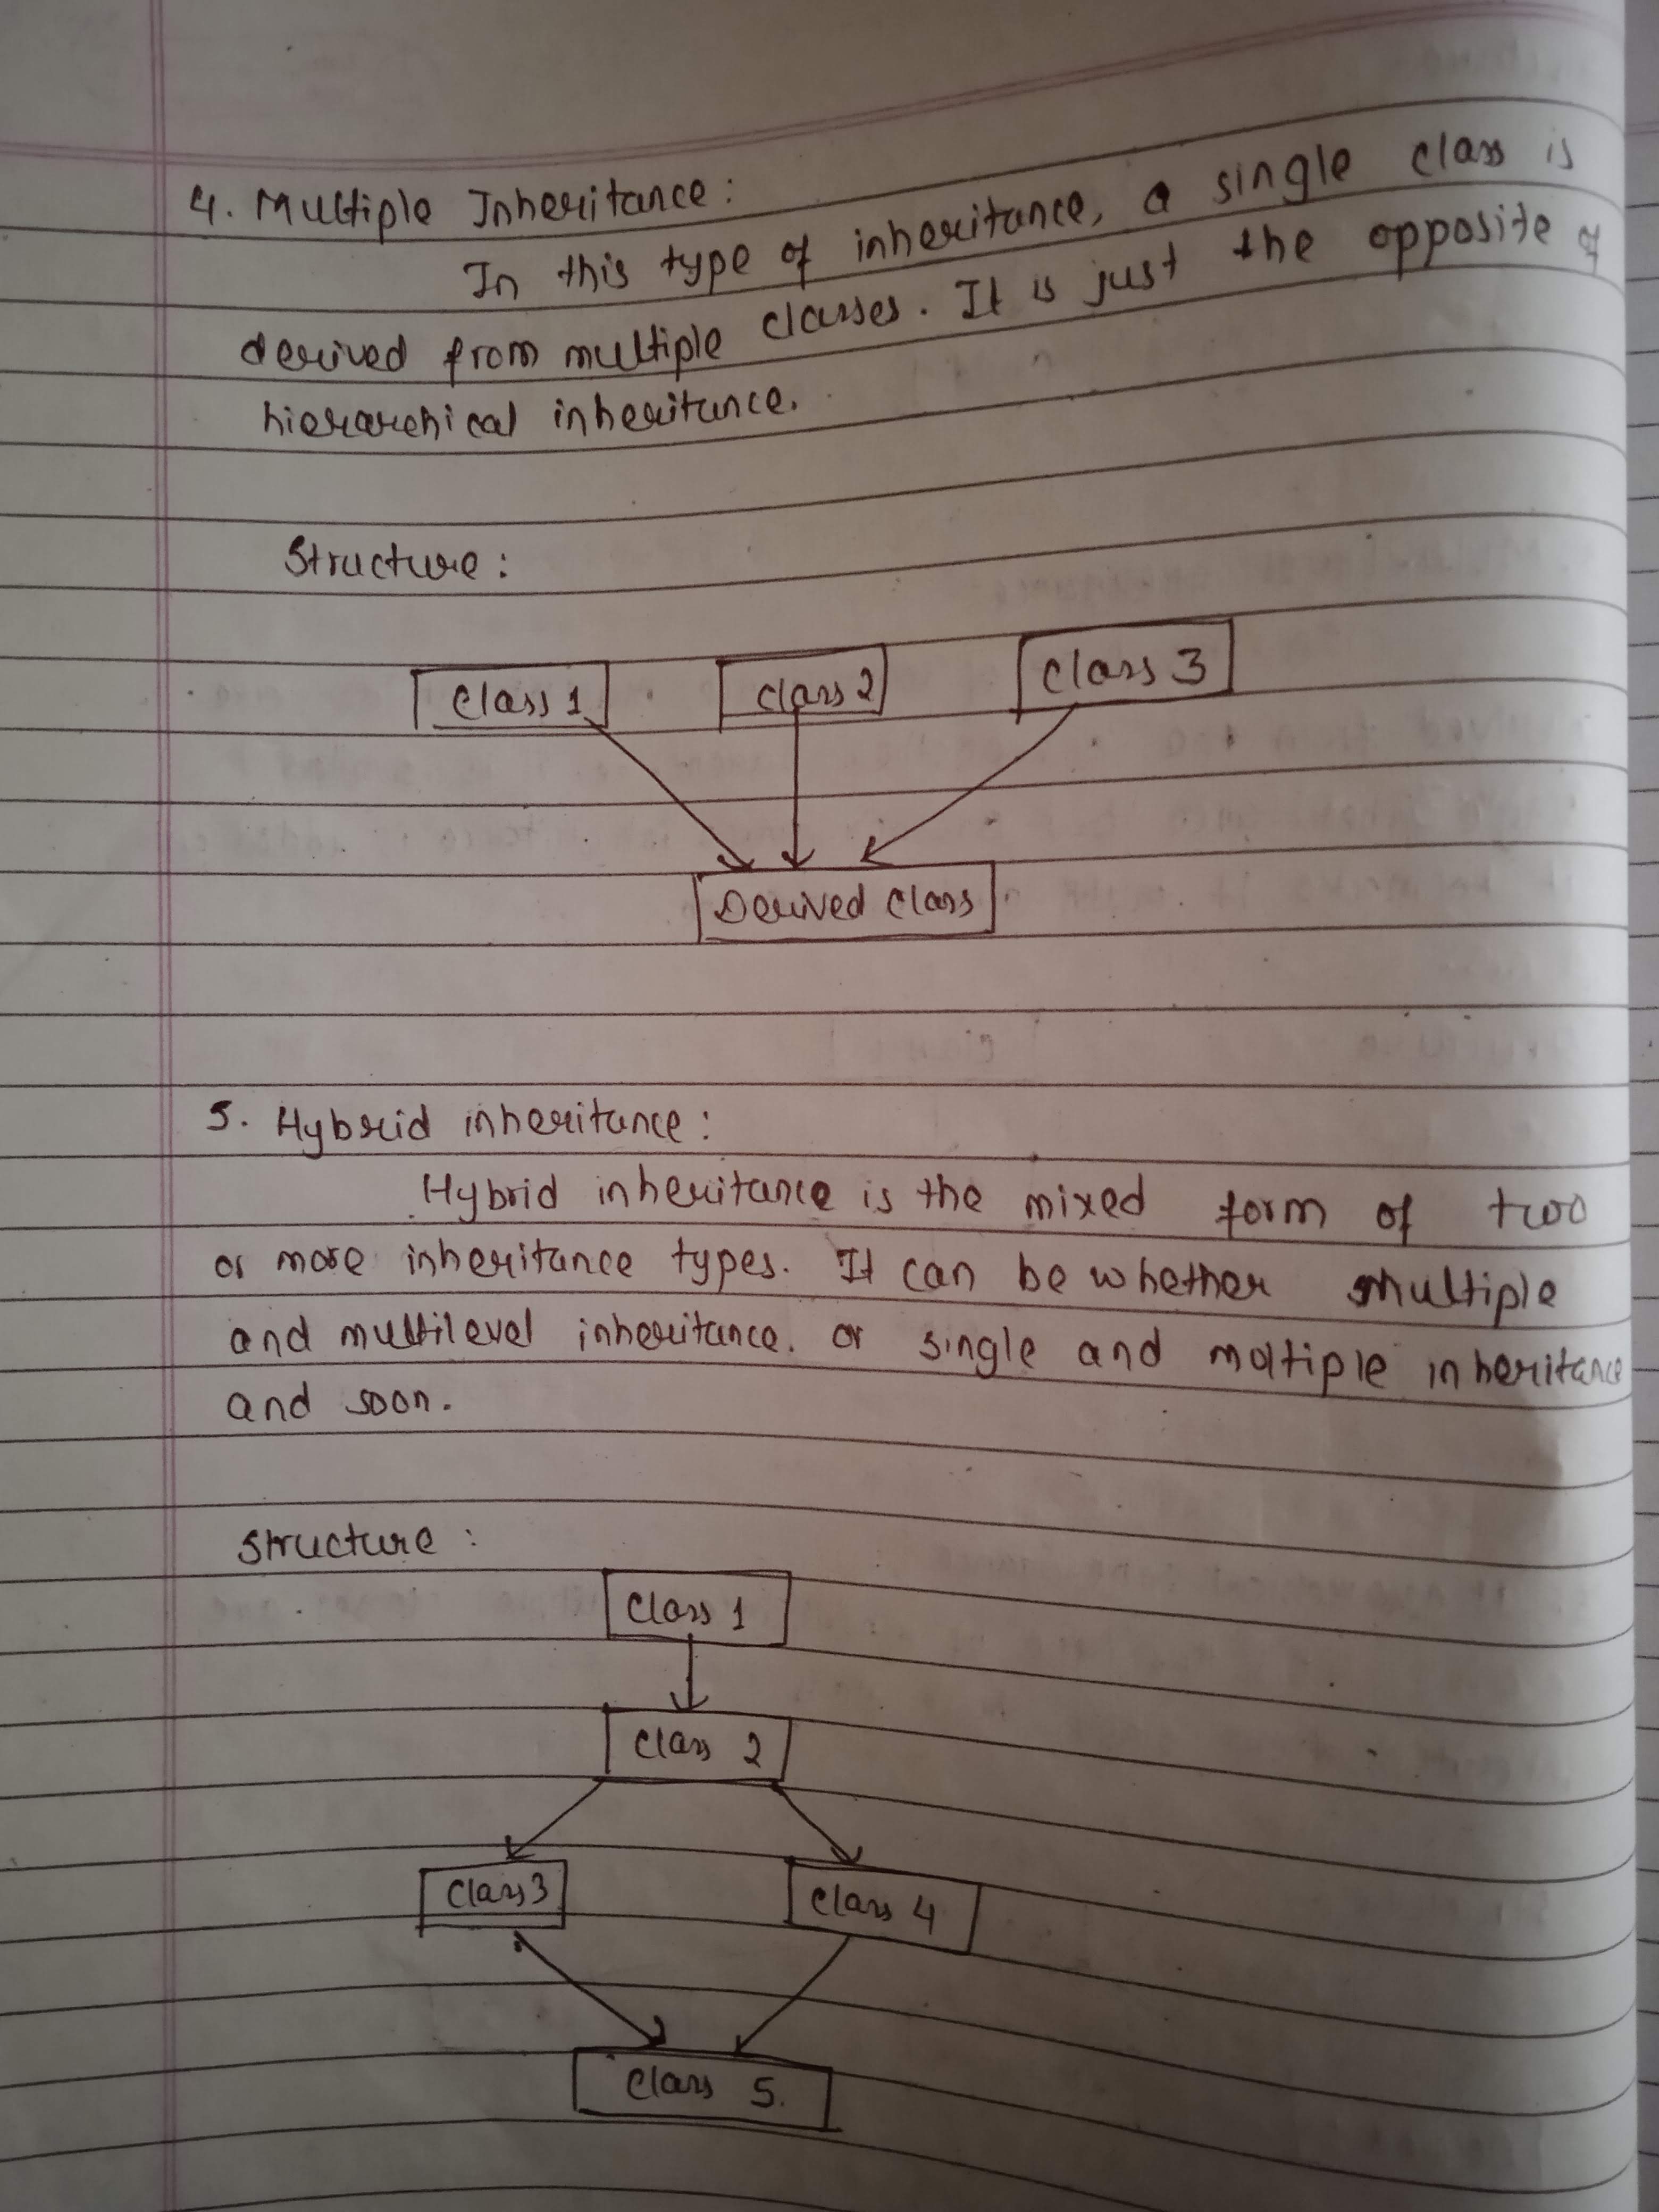 4. Multiple Inheritance:
In this type of inheritance, a single class is
derived from multiple classes. It is just the opposite of
hierarchical inheritance.
Structure:
Class 1 Class 2 Class 3
Derived Class
5. Hybrid inheritance:
Hybrid inheritance is the mixed form of two
or more inheritance types. It can be whether multiple
and multilevel inheritance. or single and moltiple inheritance
and soon.
structure:
Class 1
Class 2
Class 3 Class 4
Class 5.